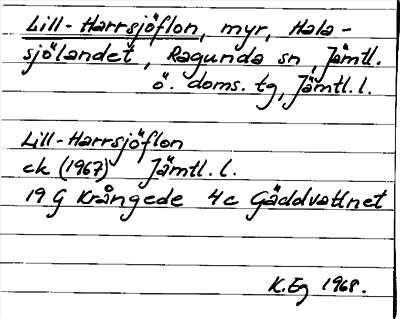 Lill-Harrsjöflon, myr, Hala-
sjölandet, Ragunda sn, Jämtl.
ö. doms. tg, Jämtl. l.
Lill-Harrsjöflon
ek (1967) Jämtl. l.
19 G Krångede 4c Gäddvattnet
K.Eg 1968.